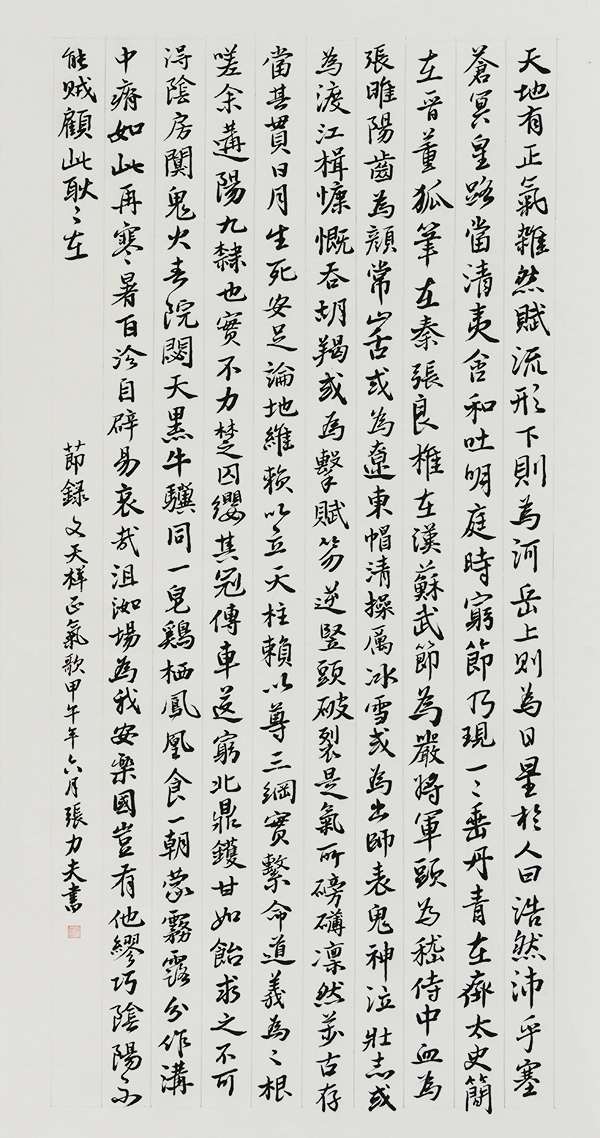 天地有正氣雜然賦流形下則為河岳上則為日星於人曰浩然沛乎塞
蒼冥皇路當清夷含和吐明庭時窮節乃現一〻垂丹青在齊太史簡
在晉董狐筆在秦張良椎在漢蘇武節為嚴將軍頭為嵇侍中血為
張睢陽齒為顏常山舌或為遼東帽清操厲冰雪或為出師表鬼神泣壯志或
為渡江楫慷慨吞胡羯或為擊賦笏逆豎頭破裂是氣所磅礴凜然萬古存
當其貫日月生死安足論地維賴以立天柱賴以尊三綱實繫命道義為〻根
嗟余遘陽九隸也實不力楚囚纓其冠傳車送窮北鼎鑊甘如飴求之不可
得陰房闃鬼火春院閟天黑牛驥同一皂鷄栖鳳凰食一朝蒙霧露分作溝
中瘠如此再寒暑百沴自辟易哀哉沮洳場為我安樂國豈有他繆巧陰陽不
能賊顧此耿〻在
節錄文天祥正氣歌甲午年六月張力夫書